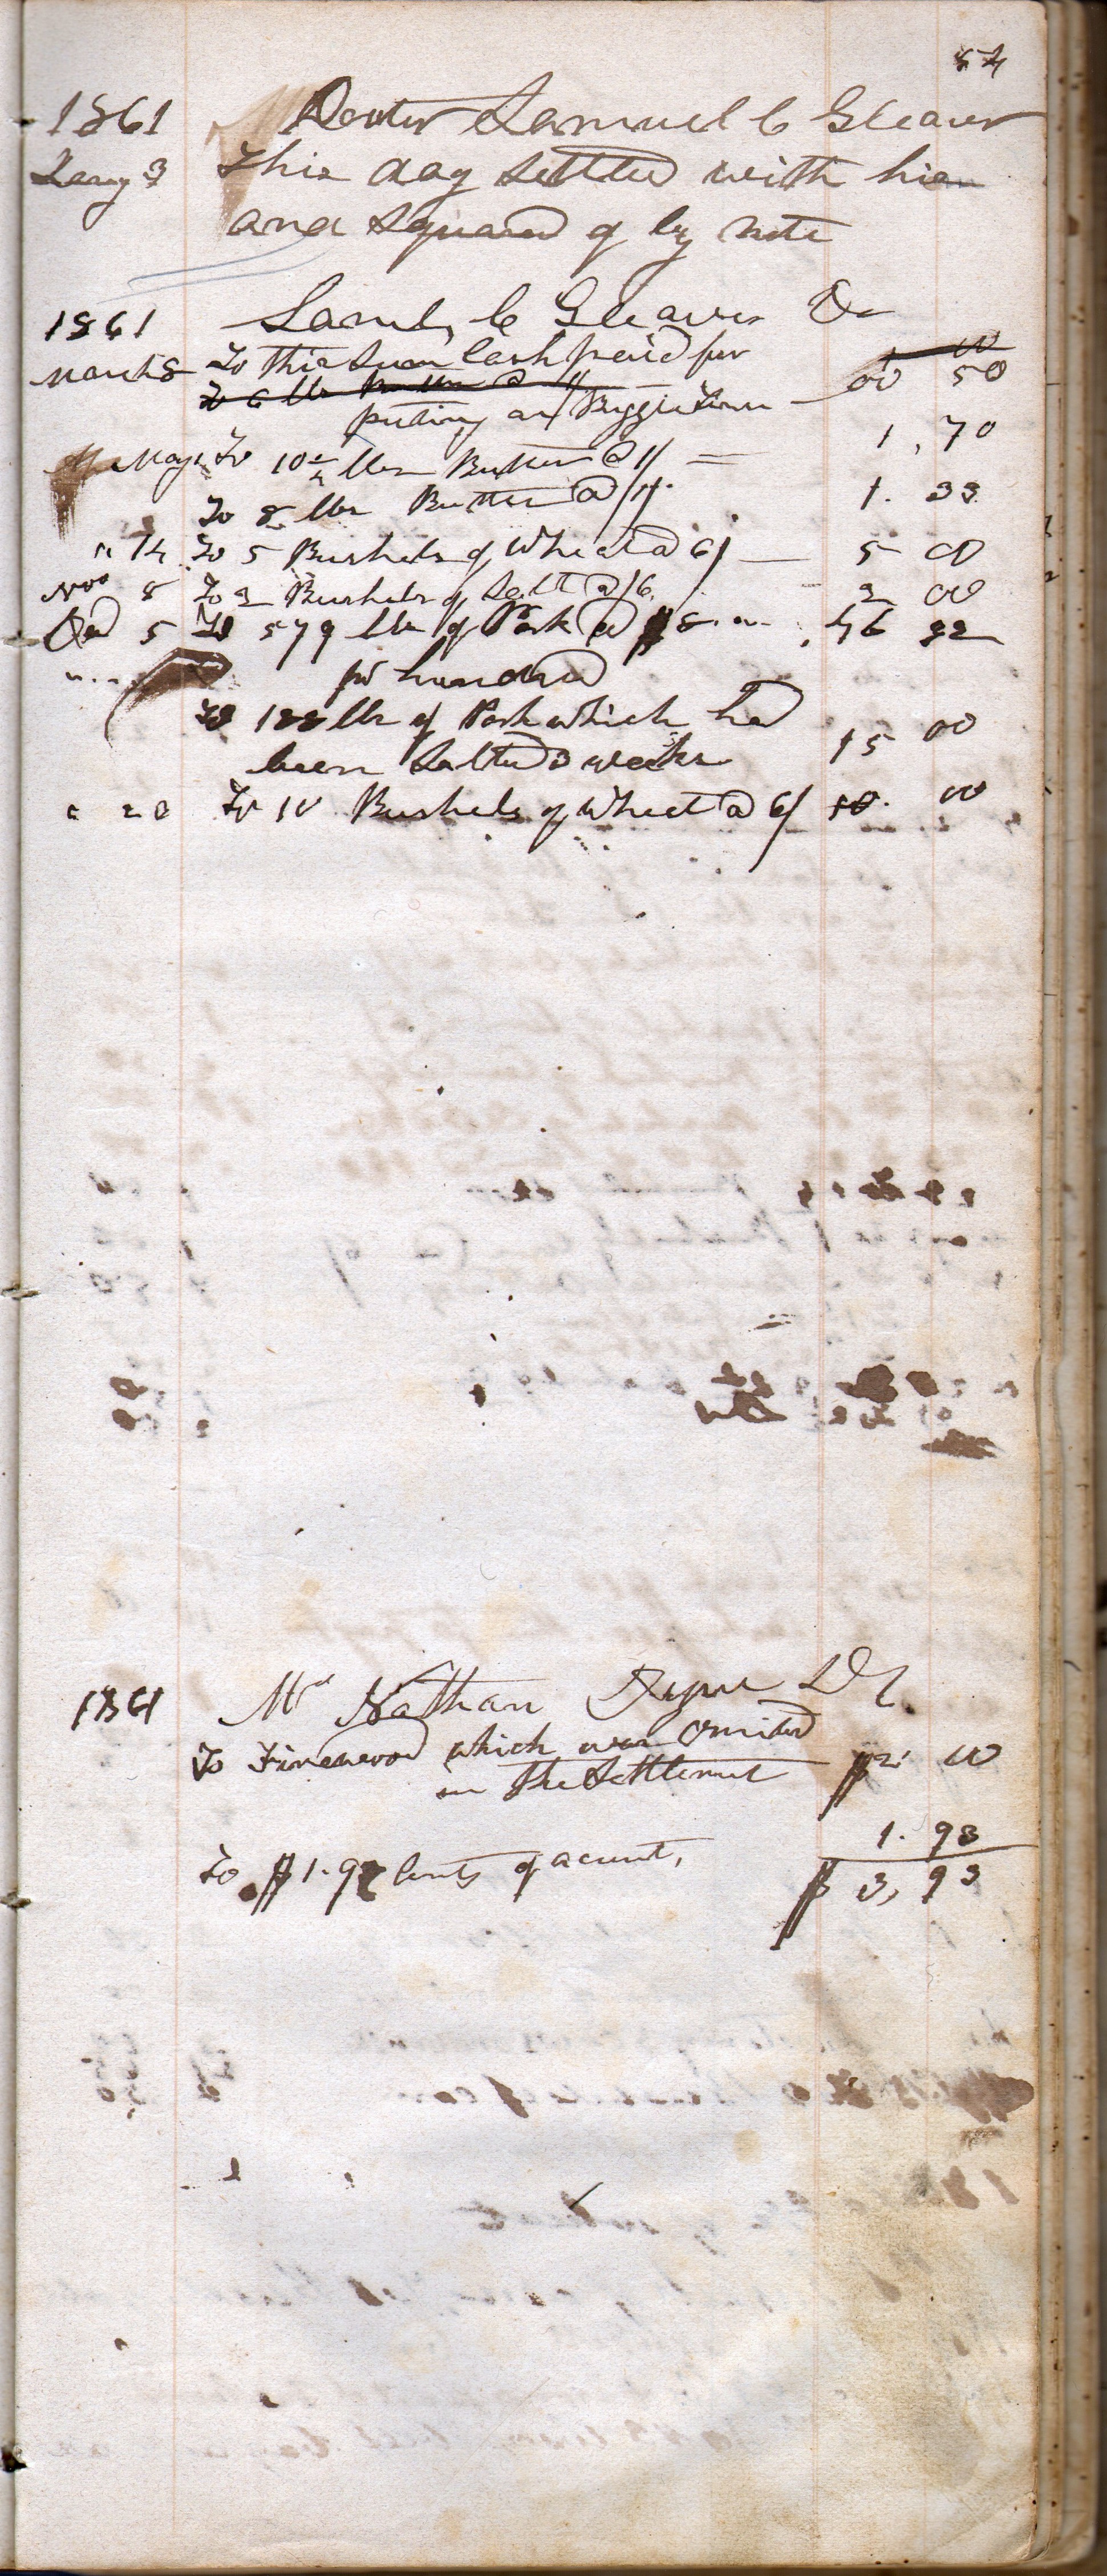 54
1861 Docter Samuel C Gleaver
Jany 3 this day settled with him
and squared of by note
1861 Saml, C Gleaver Dr
March 8 To this sum Cash paid for 00 50
To 6 lbs Butter @ 1/
puting on Buggie
May To 10 1/4 lbs Butter @ 1/ = 1,70
To 8 lbs Butter @ 1/. 1.33
" 14 To 5 Bushels of Wheat @ 6/ — 5 00
Nov 8 To 2 Bushels of Salt @ /6. 2 00
Dec 5 To 579 lbs of Pork @ $8. 46 32
pr hundred
To 188 lbs of Pork which had
been Salted 3 weeks 15 00
" 28 To 10 Bushels of Wheat @ 6/ 10. 00
1861 Mr Nathan Dr
To Firewood which was omited
in the Settlement $2. 00
1.93
To $1.93 Cents of acount, $3,93